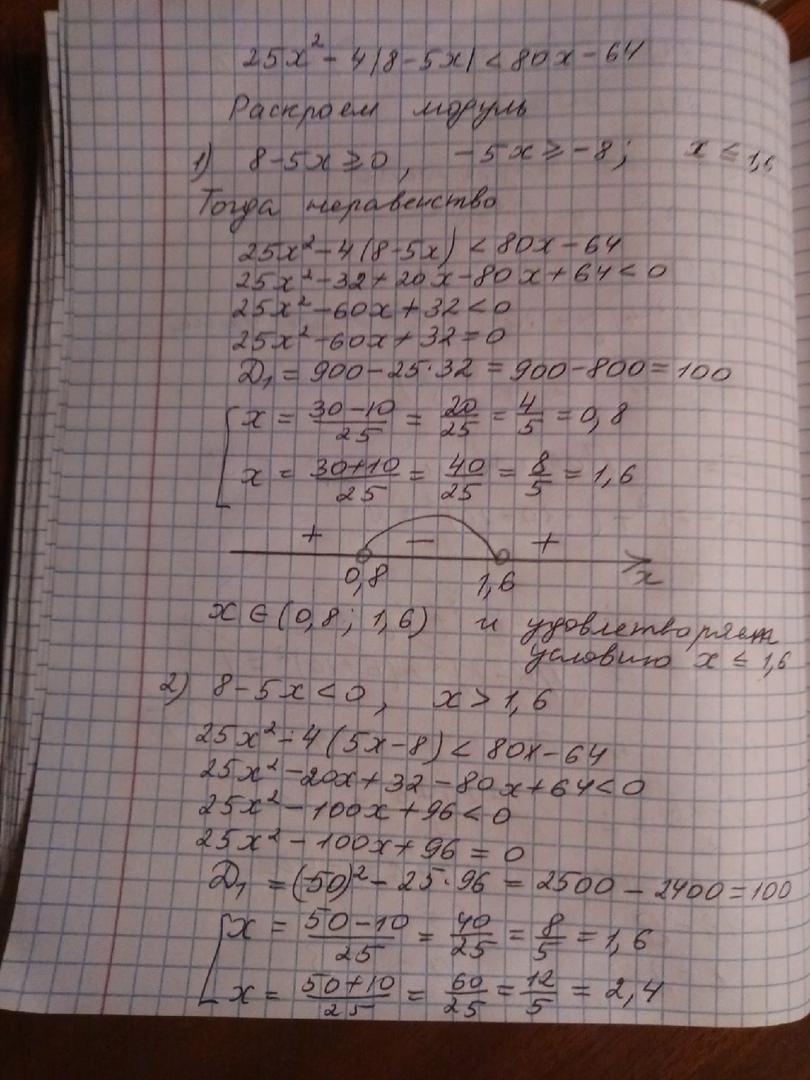 25x² - 4|8-5x| < 80x - 64
Раскроем модуль
1) 8-5x ≥ 0, -5x ≥ -8; x ≤ 1,6
Тогда неравенство
25x² - 4(8-5x) < 80x - 64
25x² - 32 + 20x - 80x + 64 < 0
25x² - 60x + 32 < 0
25x² - 60x + 32 = 0
D₁ = 900 - 25·32 = 900 - 800 = 100
[ x = (30-10)/25 = 20/25 = 4/5 = 0,8
x = (30+10)/25 = 40/25 = 8/5 = 1,6
+ − +
0,8 1,6 x
x ∈ (0,8; 1,6) и удовлетворяет
условию x ≤ 1,6
2) 8-5x < 0, x > 1,6
25x² - 4(5x-8) < 80x - 64
25x² - 20x + 32 - 80x + 64 < 0
25x² - 100x + 96 < 0
25x² - 100x + 96 = 0
D₁ = (-50)² - 25·96 = 2500 - 2400 = 100
[ x = (50-10)/25 = 40/25 = 8/5 = 1,6
x = (50+10)/25 = 60/25 = 12/5 = 2,4